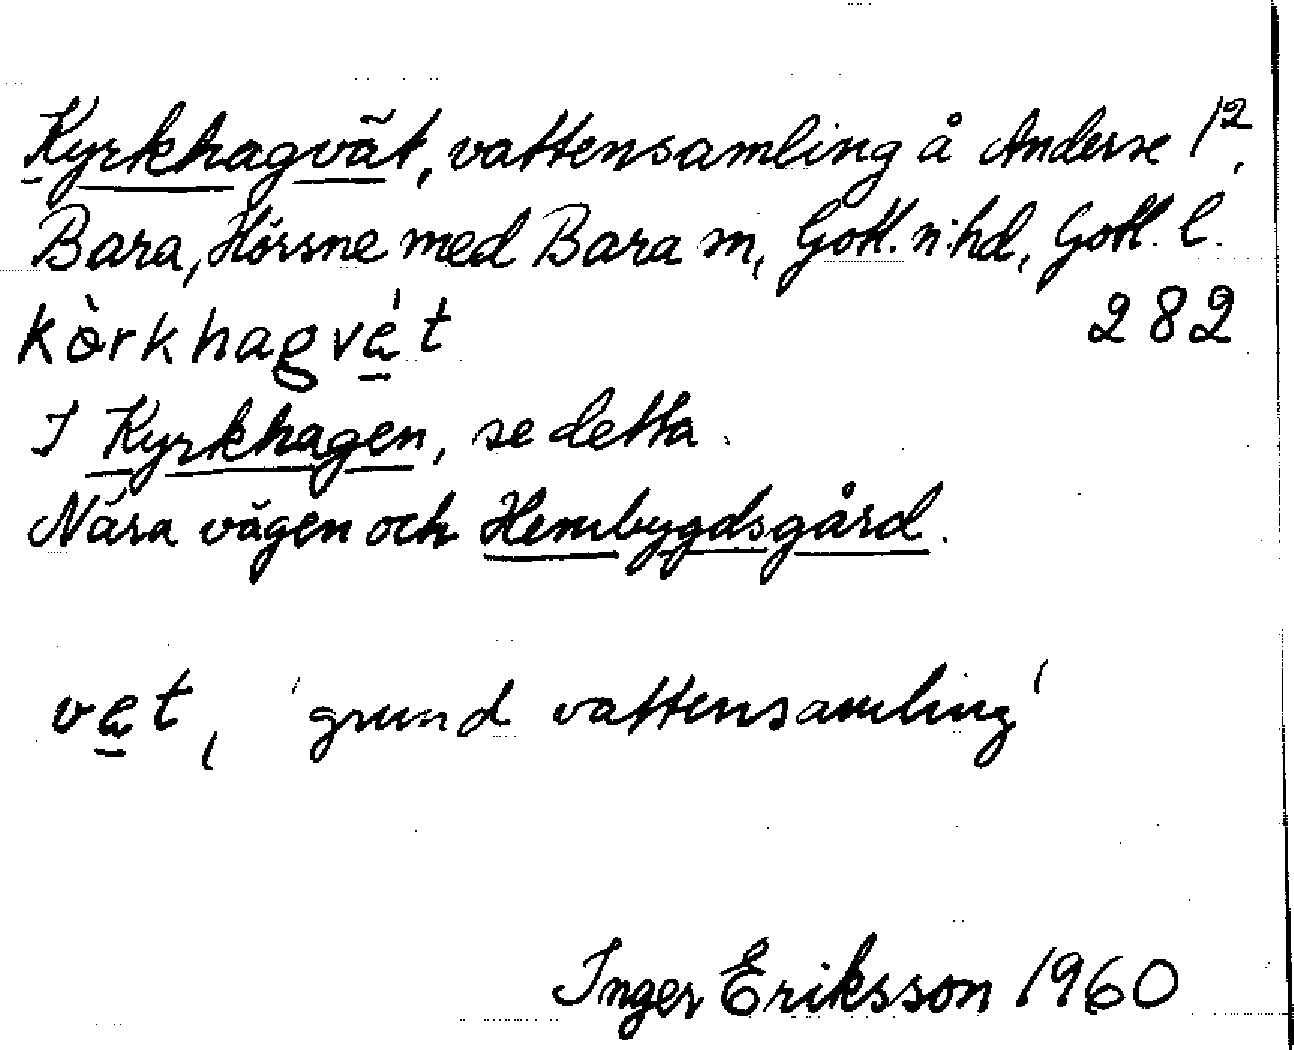 Kyrkhagvät, vattensamling å Anderse 1²,
Bara, Hörsne med Bara sn, Gotl. n. hd, Gotl. l.
kòrkhagvä́t 282
I Kyrkhagen, se detta.
Nära vägen och Hembygdsgård.
vät, 'grund vattensamling'
Inger Eriksson 1960